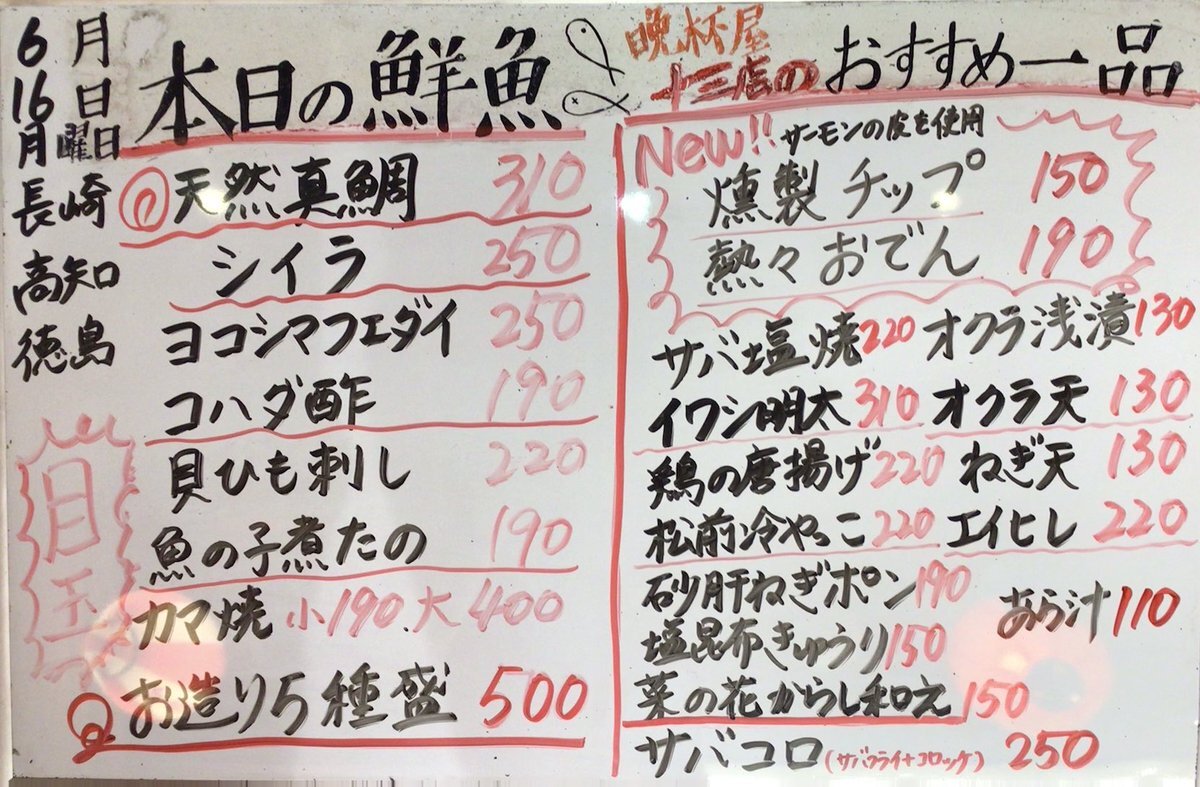 6月
16日
月曜日
本日の鮮魚
長崎 天然真鯛 310
高知 シイラ 250
徳島 ヨコシマフエダイ 250
コハダ酢 190
貝ひも刺し 220
魚の子煮たの 190
カマ焼 小190 大400
お造り5種盛 500
目玉
晩杯屋
十三店のおすすめ一品
New!! サーモンの皮を使用
燻製チップ 150
熱々おでん 190
サバ塩焼 220 オクラ浅漬 130
イワシ明太 310 オクラ天 130
鶏の唐揚げ 220 ねぎ天 130
松前冷やっこ 220 エイヒレ 220
砂肝ねぎポン 190 あら汁 110
塩昆布きゅうり 150
菜の花からし和え 150
サバコロ(サバフライ+コロッケ) 250